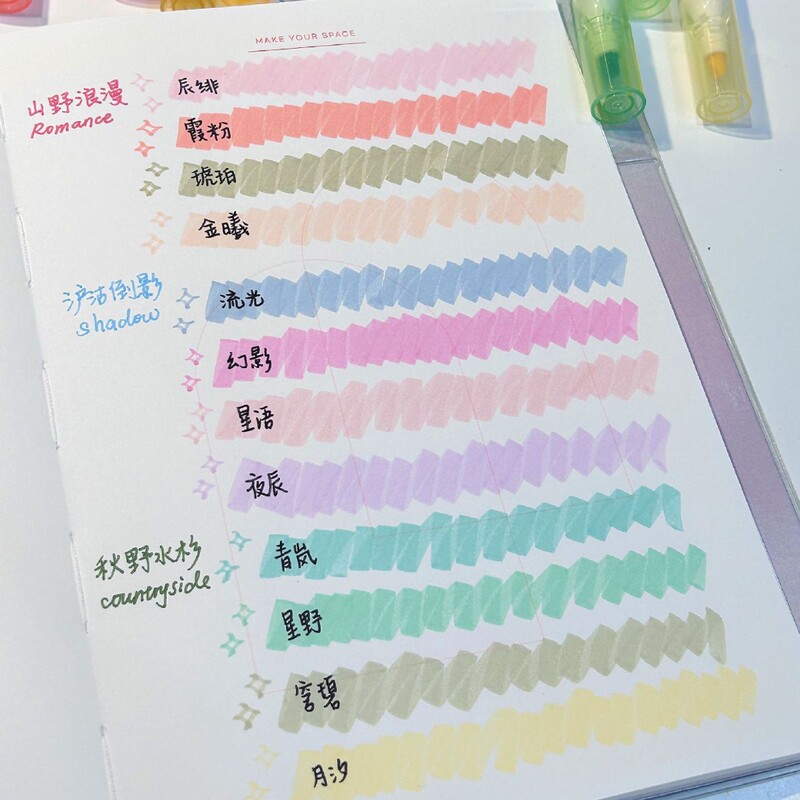 MAKE YOUR SPACE
山野浪漫
Romance
辰绯
霞粉
琥珀
金曦
沪沽倒影
shadow
流光
幻影
星语
夜辰
秋野水杉
countryside
青岚
星野
窖碧
月汐